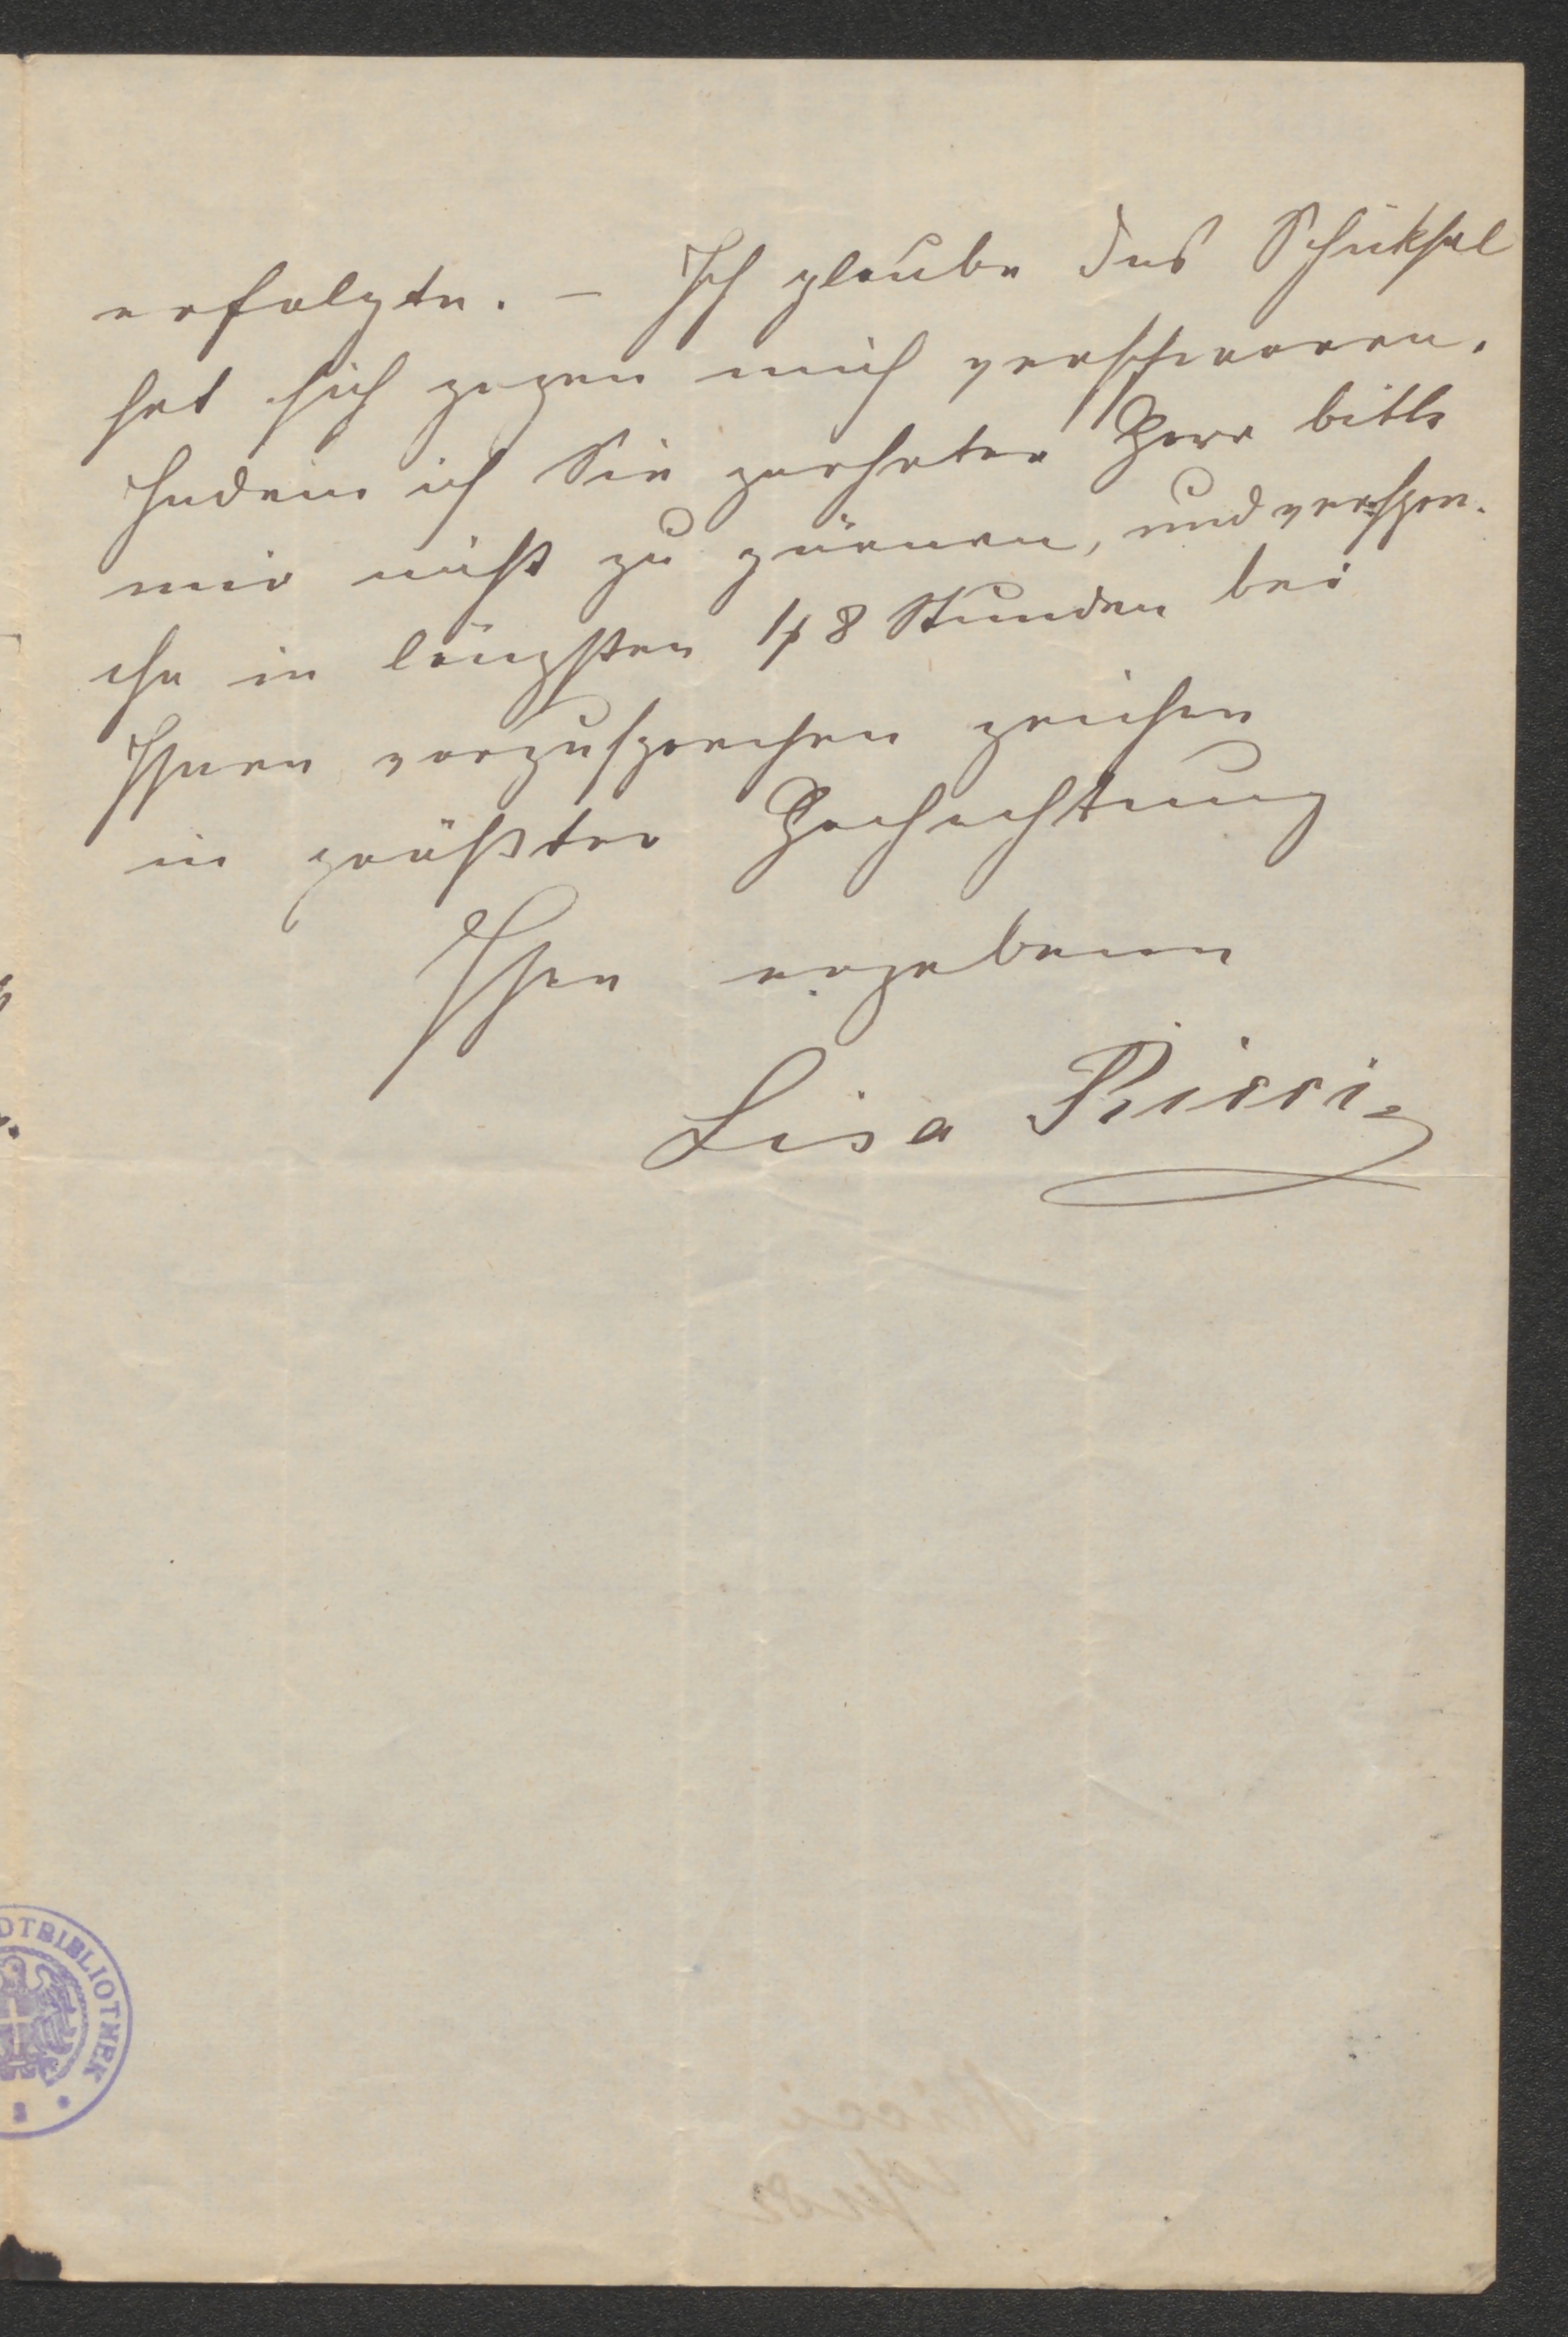 erfolgte. – Ich glaube das Schiksal
hat sich gegen mich verschworen.
Indem ich Sie geehrter Herr bitte
mir nicht zu zürnen, und verspre-
che in längsten 48 Stunden bei
Ihnen vorzusprechen zeichen
in größter Hochachtung
Ihre ergebene
Lisa Ricci
DTBIBLIOTHEK